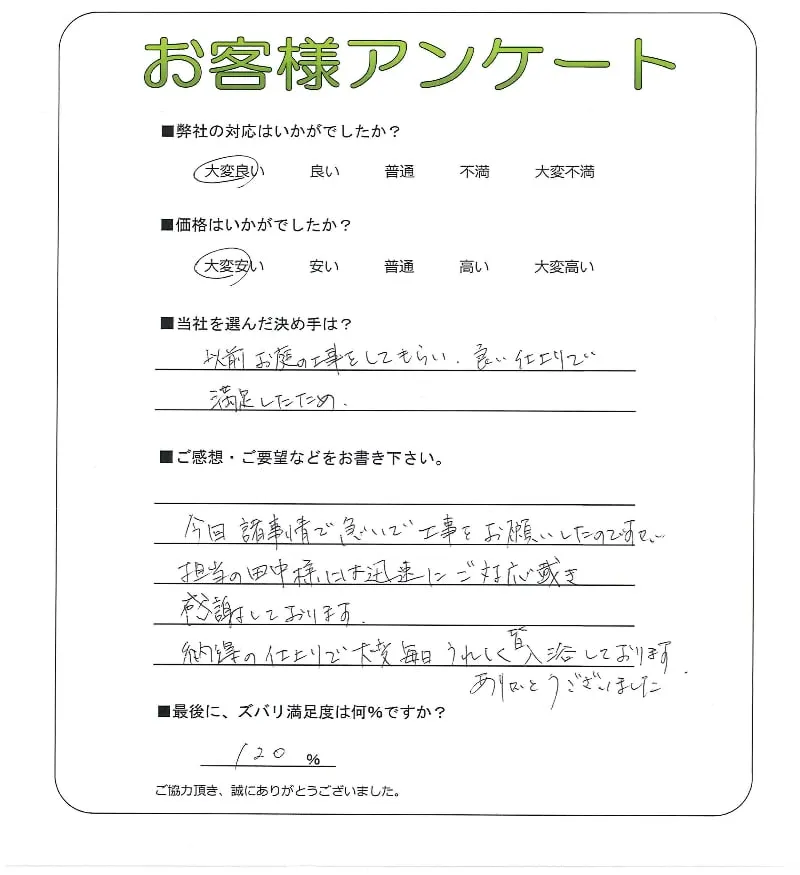 お客様アンケート
■弊社の対応はいかがでしたか？
大変良い 良い 普通 不満 大変不満
■価格はいかがでしたか？
大変安い 安い 普通 高い 大変高い
■当社を選んだ決め手は？
以前お庭の工事をしてもらい、良い仕上りで
満足したため.
■ご感想・ご要望などをお書き下さい。
今回諸事情で急いで工事をお願いしたのですが、
担当の田中様には迅速にご対応戴き
感謝しております.
納得の仕上りで大変毎日うれしく入浴しております.
ありがとうございました
■最後に、ズバリ満足度は何%ですか？
120 %
ご協力頂き、誠にありがとうございました。